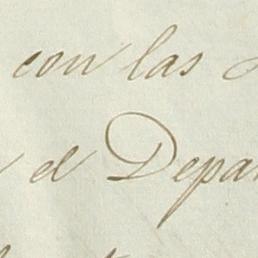 con las
el Depar